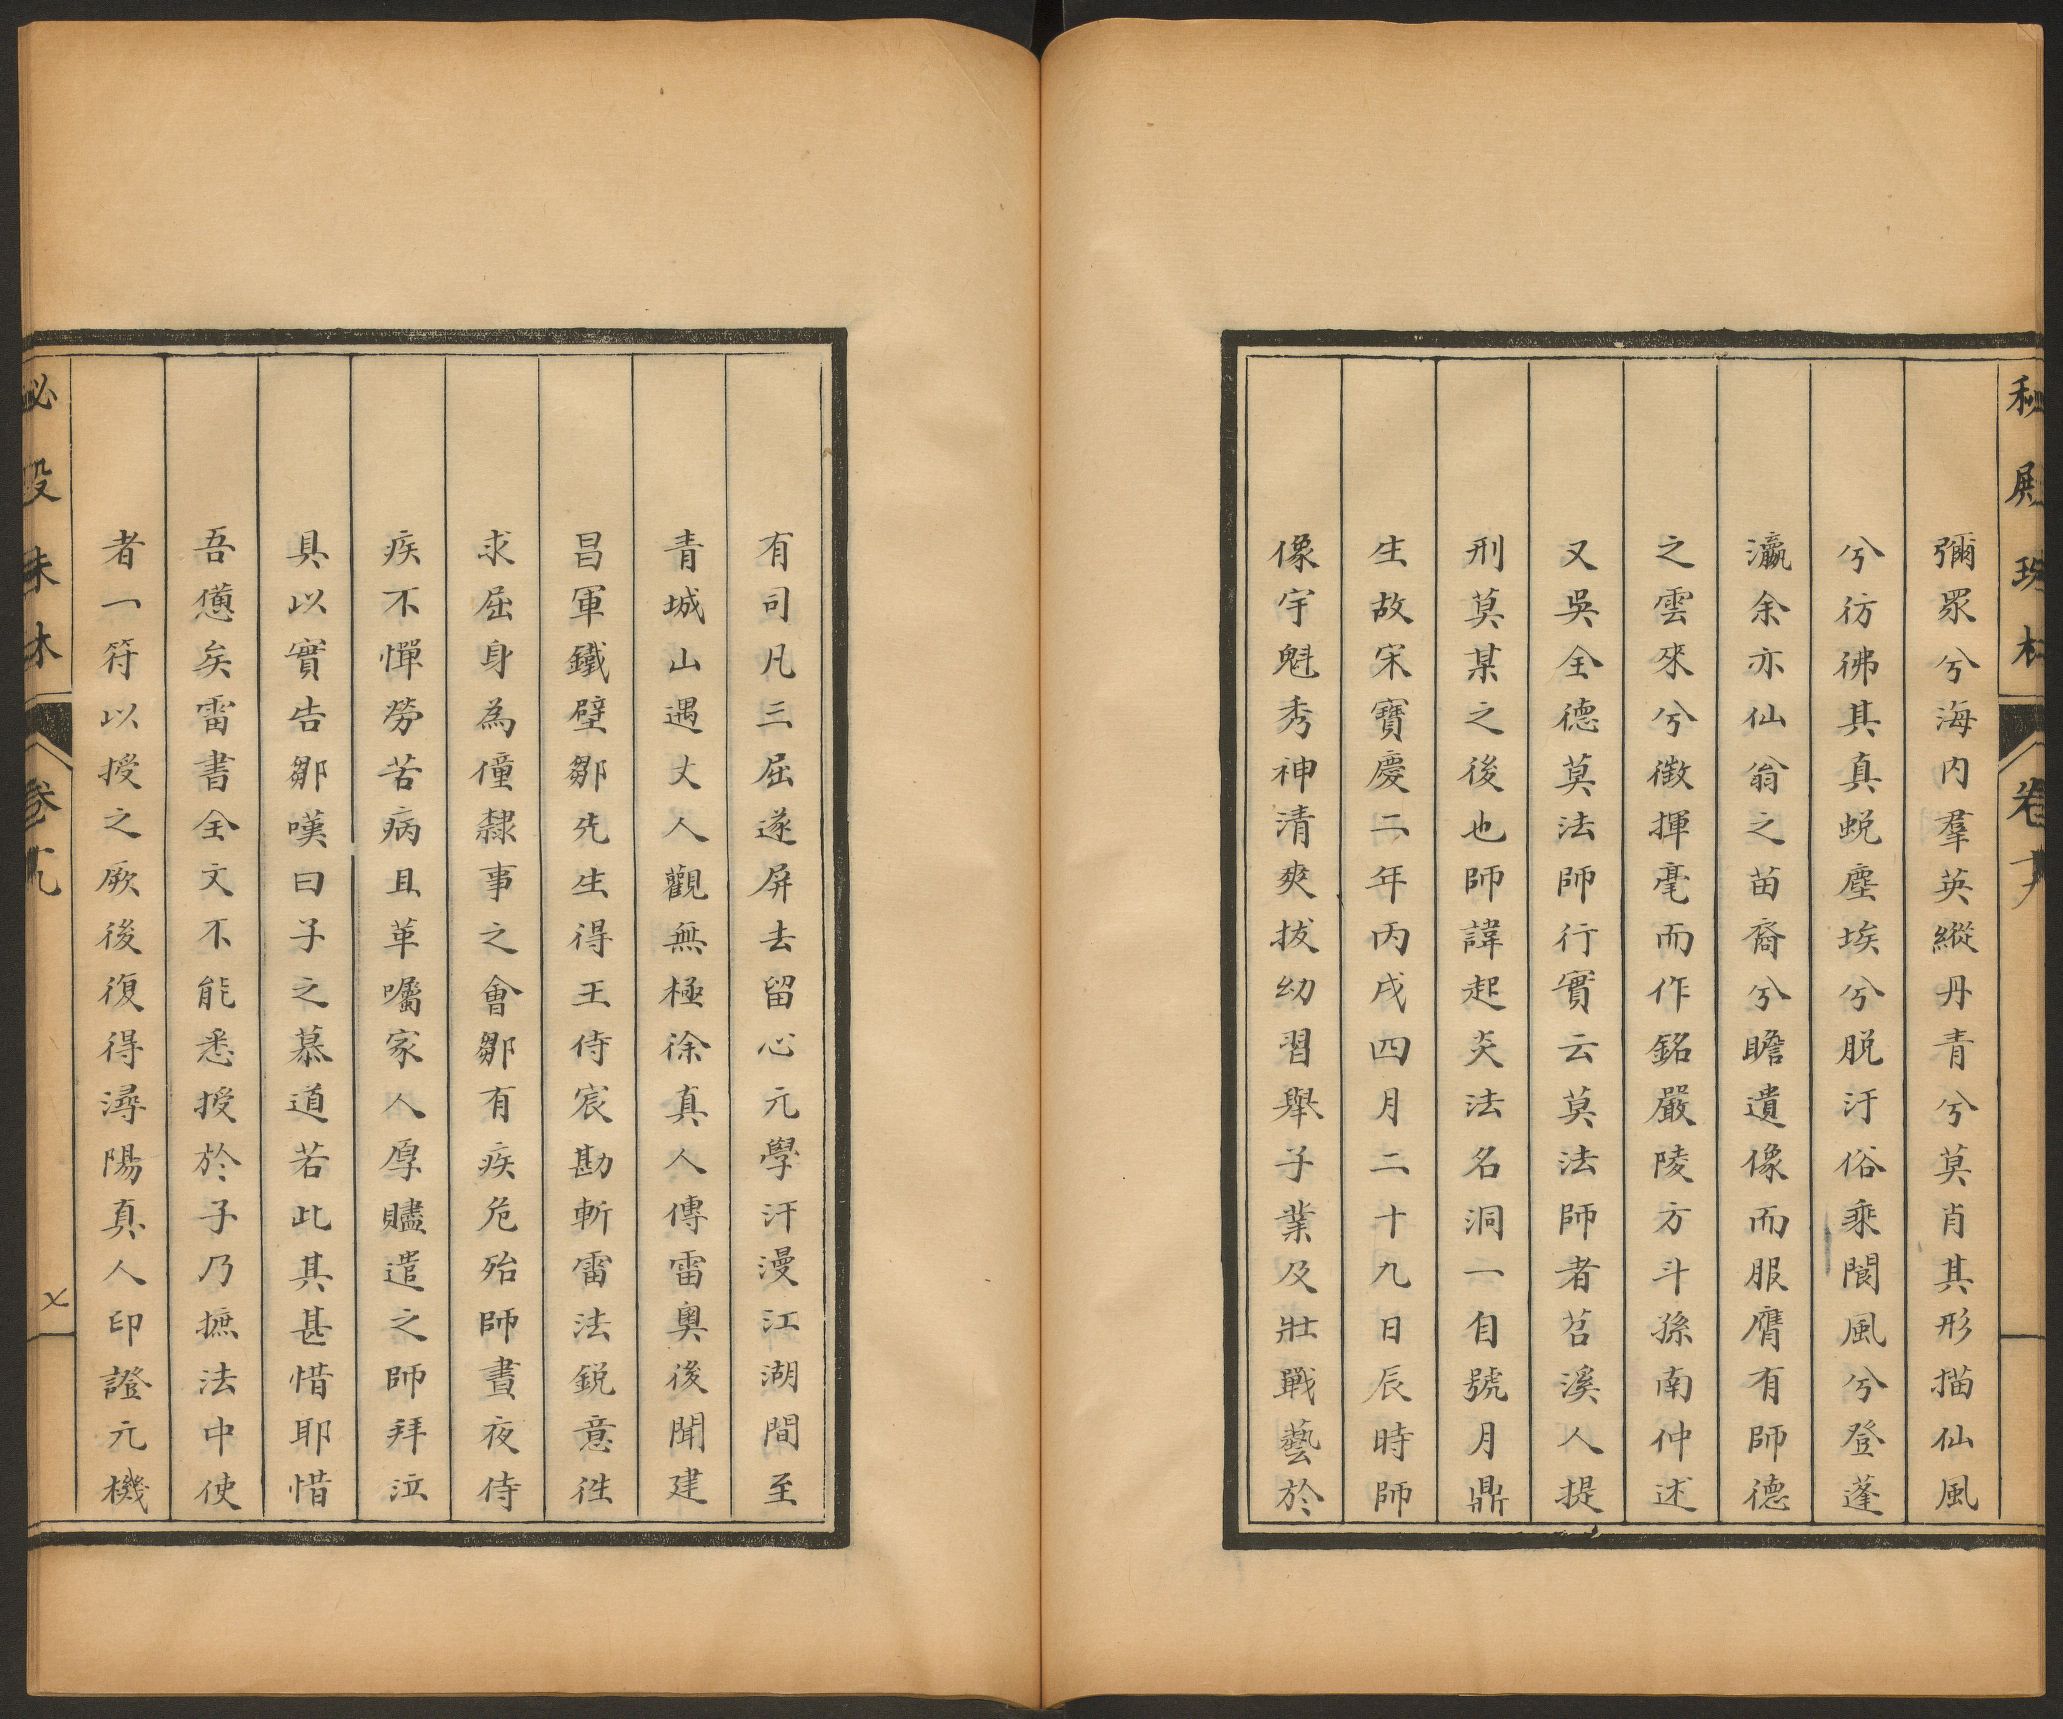 彌眾兮海內羣英縱丹青兮莫肖其形描仙風
兮彷彿其真蛻塵埃兮脫汙俗乘閬風兮登蓬
瀛余亦仙翁之苗裔兮瞻遺像而服膺有師德
之雲來兮徵揮毫而作銘嚴陵方斗孫南仲述
又吳全德莫法師行實云莫法師者苕溪人提
刑莫某之後也師諱起炎法名洞一自號月鼎
生故宋寶慶二年丙戌四月二十九日辰時師
像宇魁秀神清爽拔幼習舉子業及壯戰藝於
有司凡三屈遂屏去留心元學汗漫江湖間至
青城山遇丈人觀無極徐真人傳雷奧後聞建
昌軍鐵壁鄒先生得王侍宸勘斬雷法銳意徃
求屈身為僮隸事之會鄒有疾危殆師晝夜侍
疾不憚勞苦病且革囑家人厚贐遣之師拜泣
具以實告鄒嘆曰子之慕道若此其甚惜耶惜
吾憊矣雷書全文不能悉授於子乃摭法中使
者一符以授之厥後復得潯陽真人印證元機